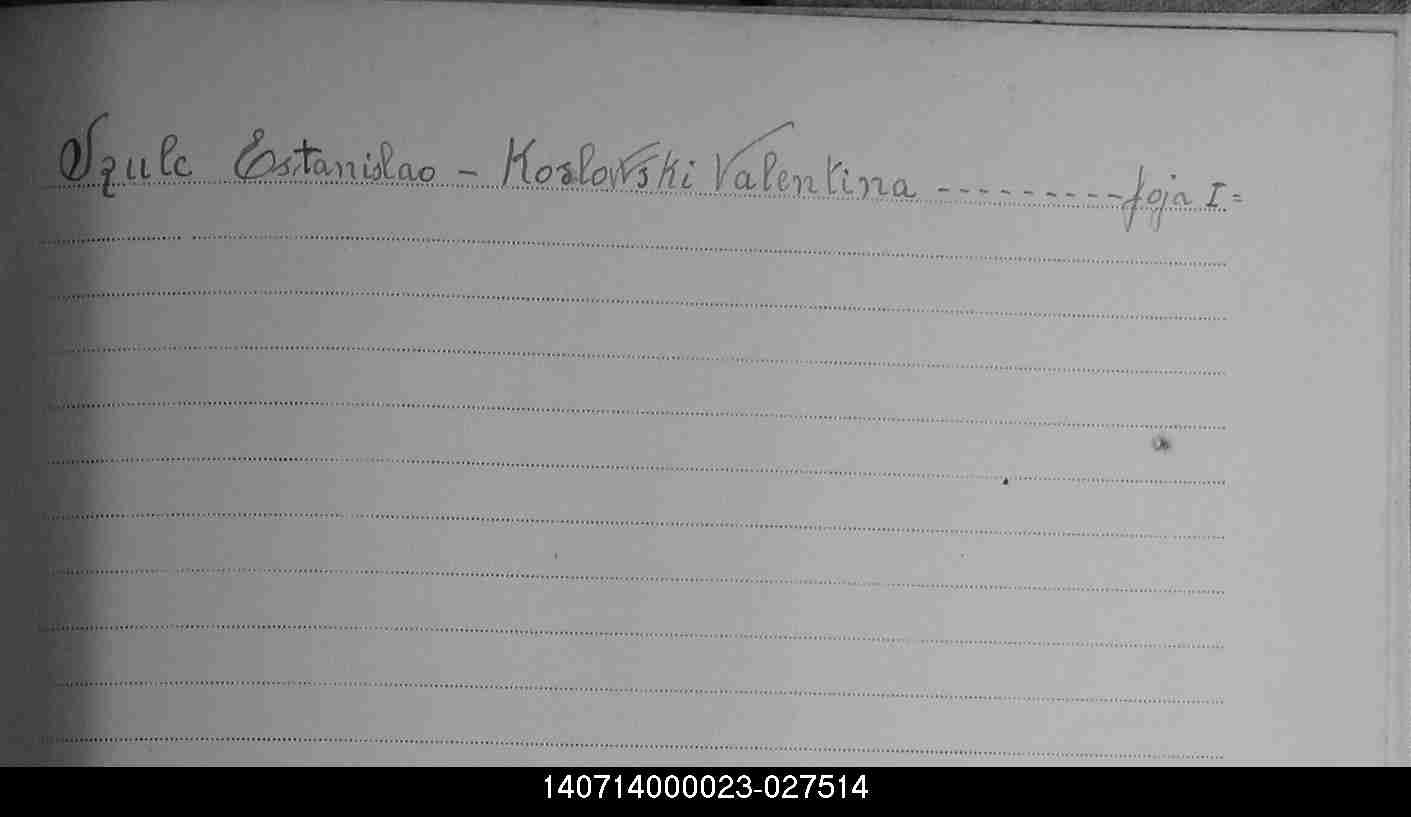 Szulc Estanislao - Koslowski Valentina --------- foja I =
140714000023-027514